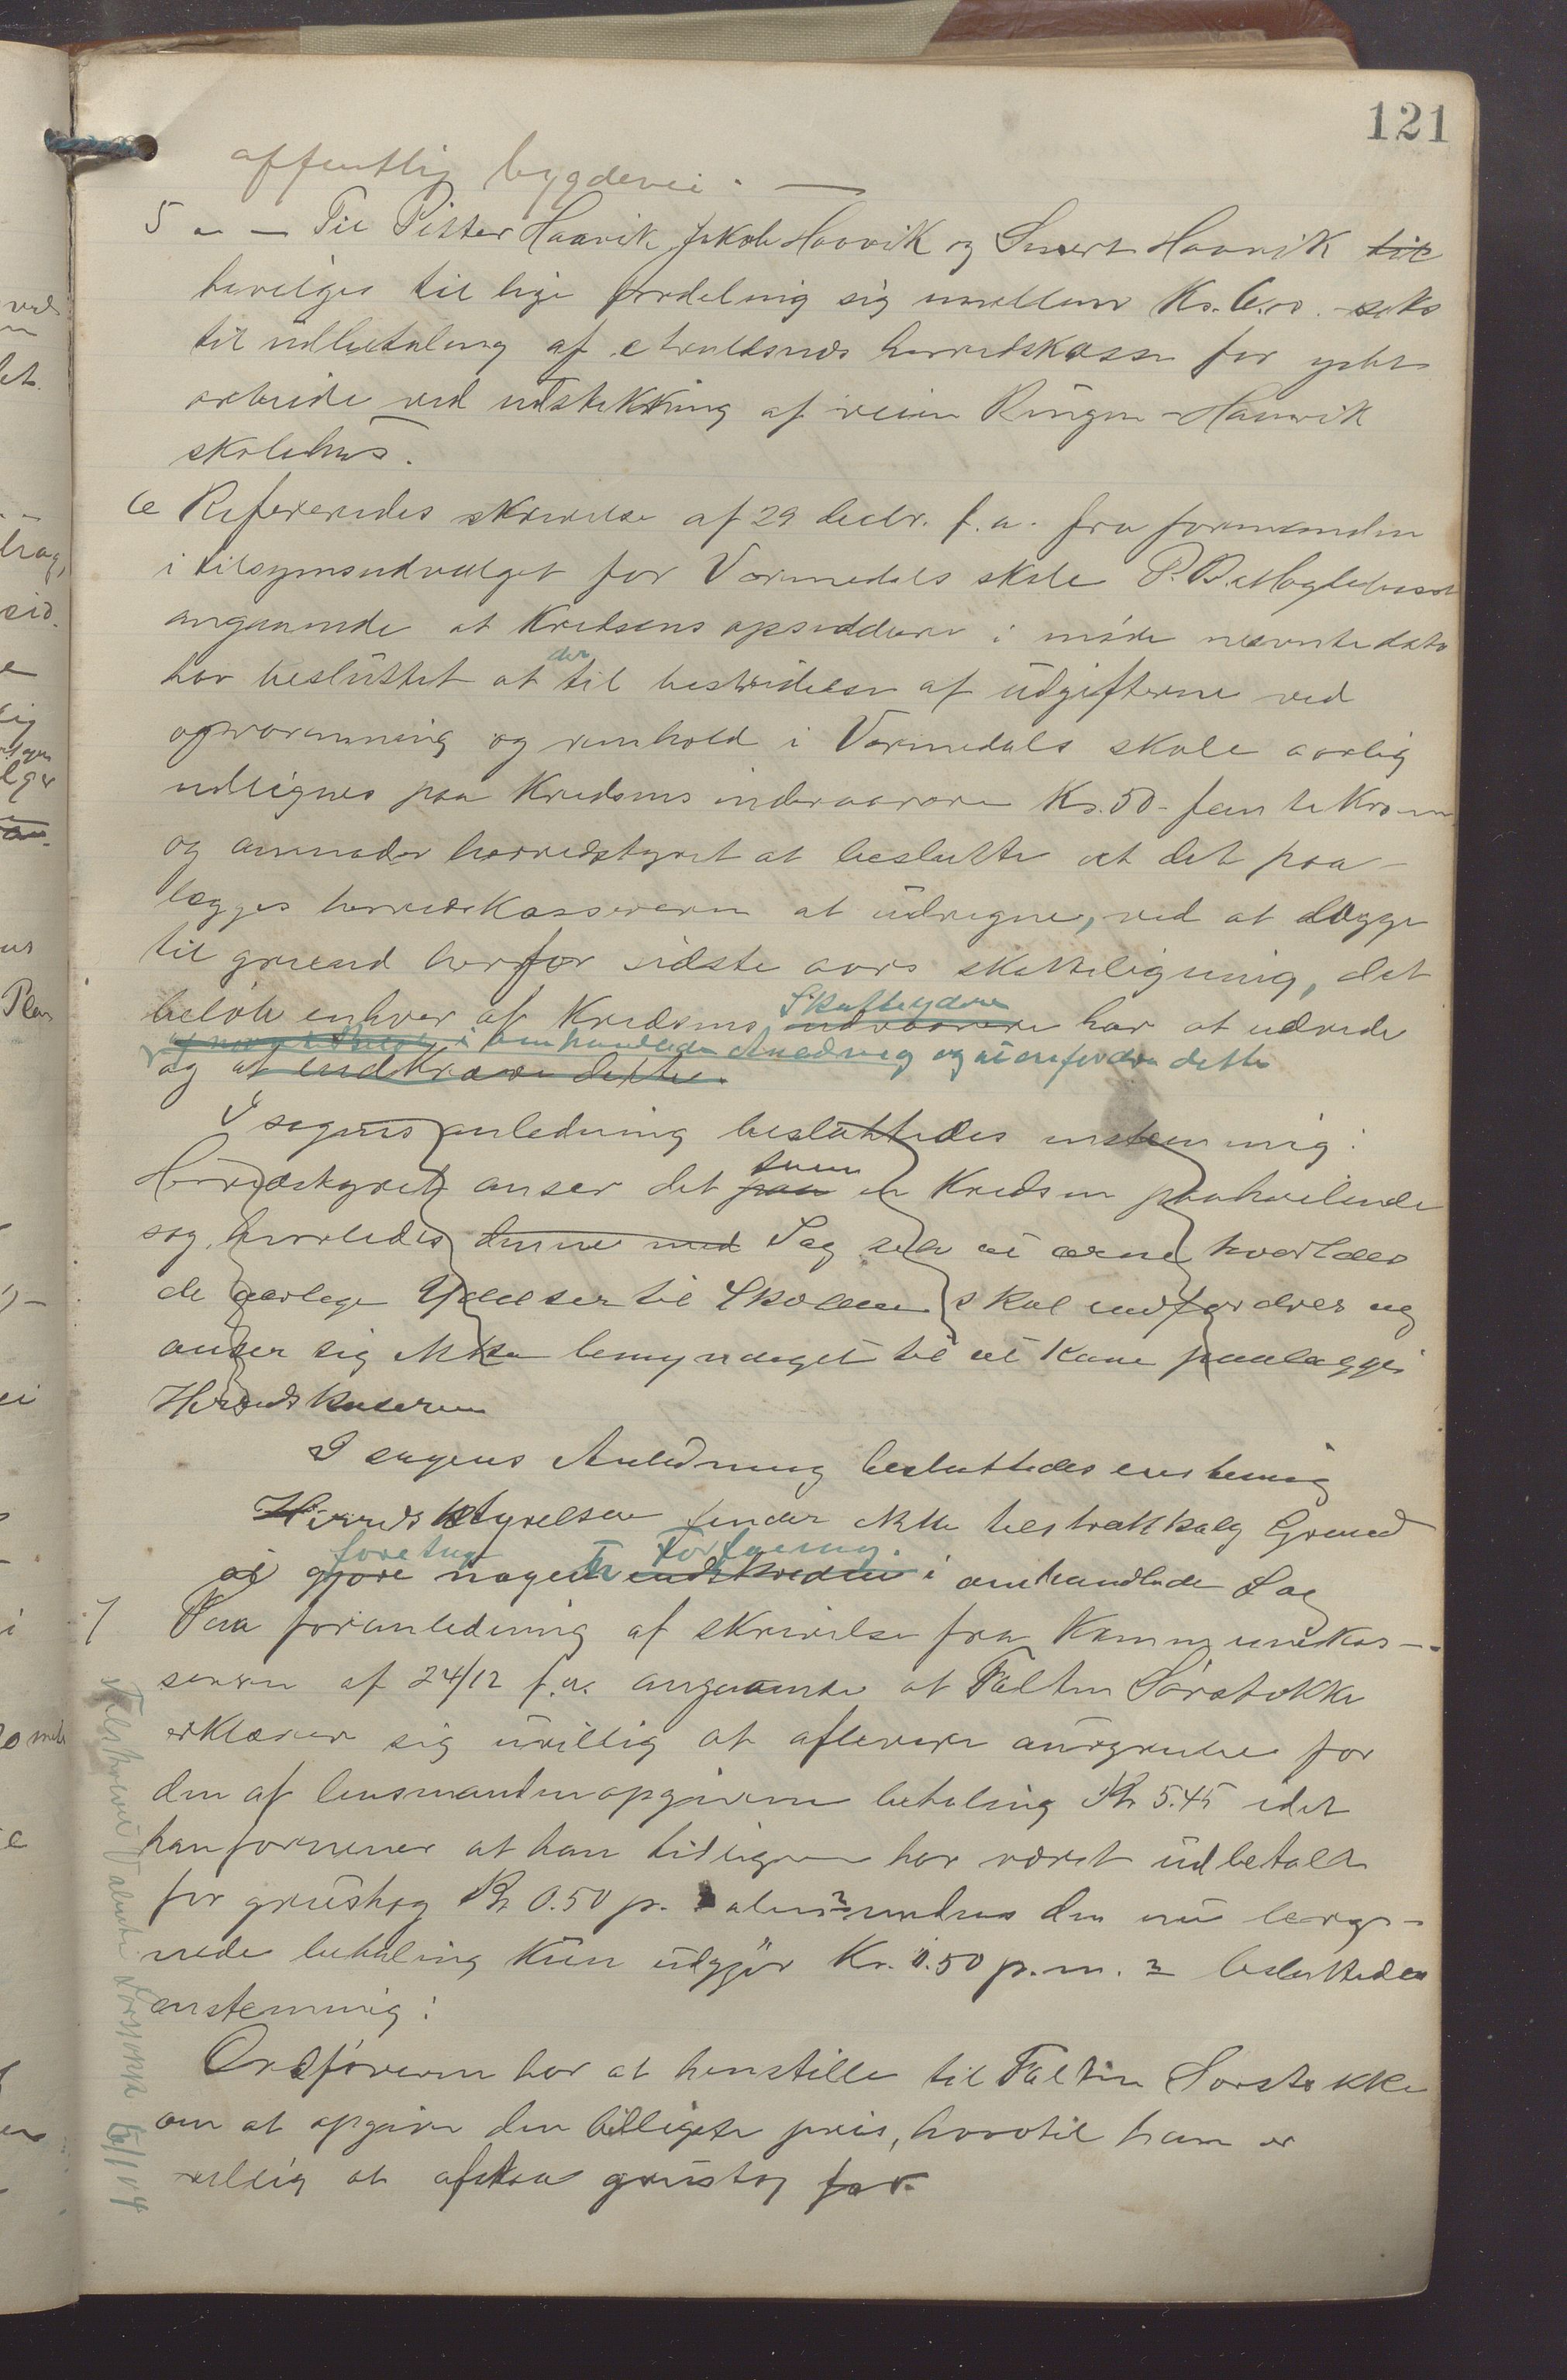 121
offentlig bygdevei. —
5 — Til Pitter Haavik, Jakob Haavik og Haavik til
bevilges til lige fordeling sig imellem Kr. 6.00 - seks
til udbetaling af herredskasse for ydet
arbeide ved udstikking af veien Ringen - Haavik
skolehus.
6 Refereredes skrivelse af 29 decbr. f.a. fra formanden
i tilsynsudvalget for Varmedals skole P. B.
angaaende at Kredsens opsiddere i møde nævnte dato
har besluttet at der til bestridelse af udgifterne ved
opvarmning og renhold i Varmedals skole aarlig
udlignes paa Kredsens indvaanere Kr. 50 - femti Kroner
og anmoder herredstyret at beslutte at det paa-
lægges herredskassereren at udregne, ved at lægge
til grund herfor sidste aars skatteligning, det
beløb enhver af Kredsens indvaanere Skatteydere har at udrede
i omhandlede Anledning og at indfordre dette
og at indkræve dette.
I sagens anledning besluttedes enstemmig:
Herredstyret anser det paa som en Kredsen paahvilende
sag, hvorledes denne med Sag at hvorledes
de aarlige Ydelser til Skolen skal indfordres og
anser sig ikke bemyndiget til at kunne paalægge
Herredskasereren
I sagens Anledning besluttedes enstemmig
Herredstyrelsen finder ikke tilstrækkelig Grund
at gjøre foretage nogen Forføining i omhandlede Sag
7 Paa foranledning af skrivelse fra Kommunekas-
sereren af 24/12 f.a. angaaende at Falten Sørstokke
erklærer sig uvillig at aflevere aurgruben for
den af lensmanden opgivne betaling Kr 5.45 idet
han formener at han tidligere har været udbetalt
for grustag Kr 0.50 p. alen² medens den nu bereg-
nede betaling kun udgjør Kr. 0.50 p. m. 2 besluttedes
enstemmig:
Ordføreren har at henstille til Falten Sørstokke
om at opgive den billigste pris, hvortil han er
villig at afstaa grustag for.
Tilskrevet Sørstokke /1 04